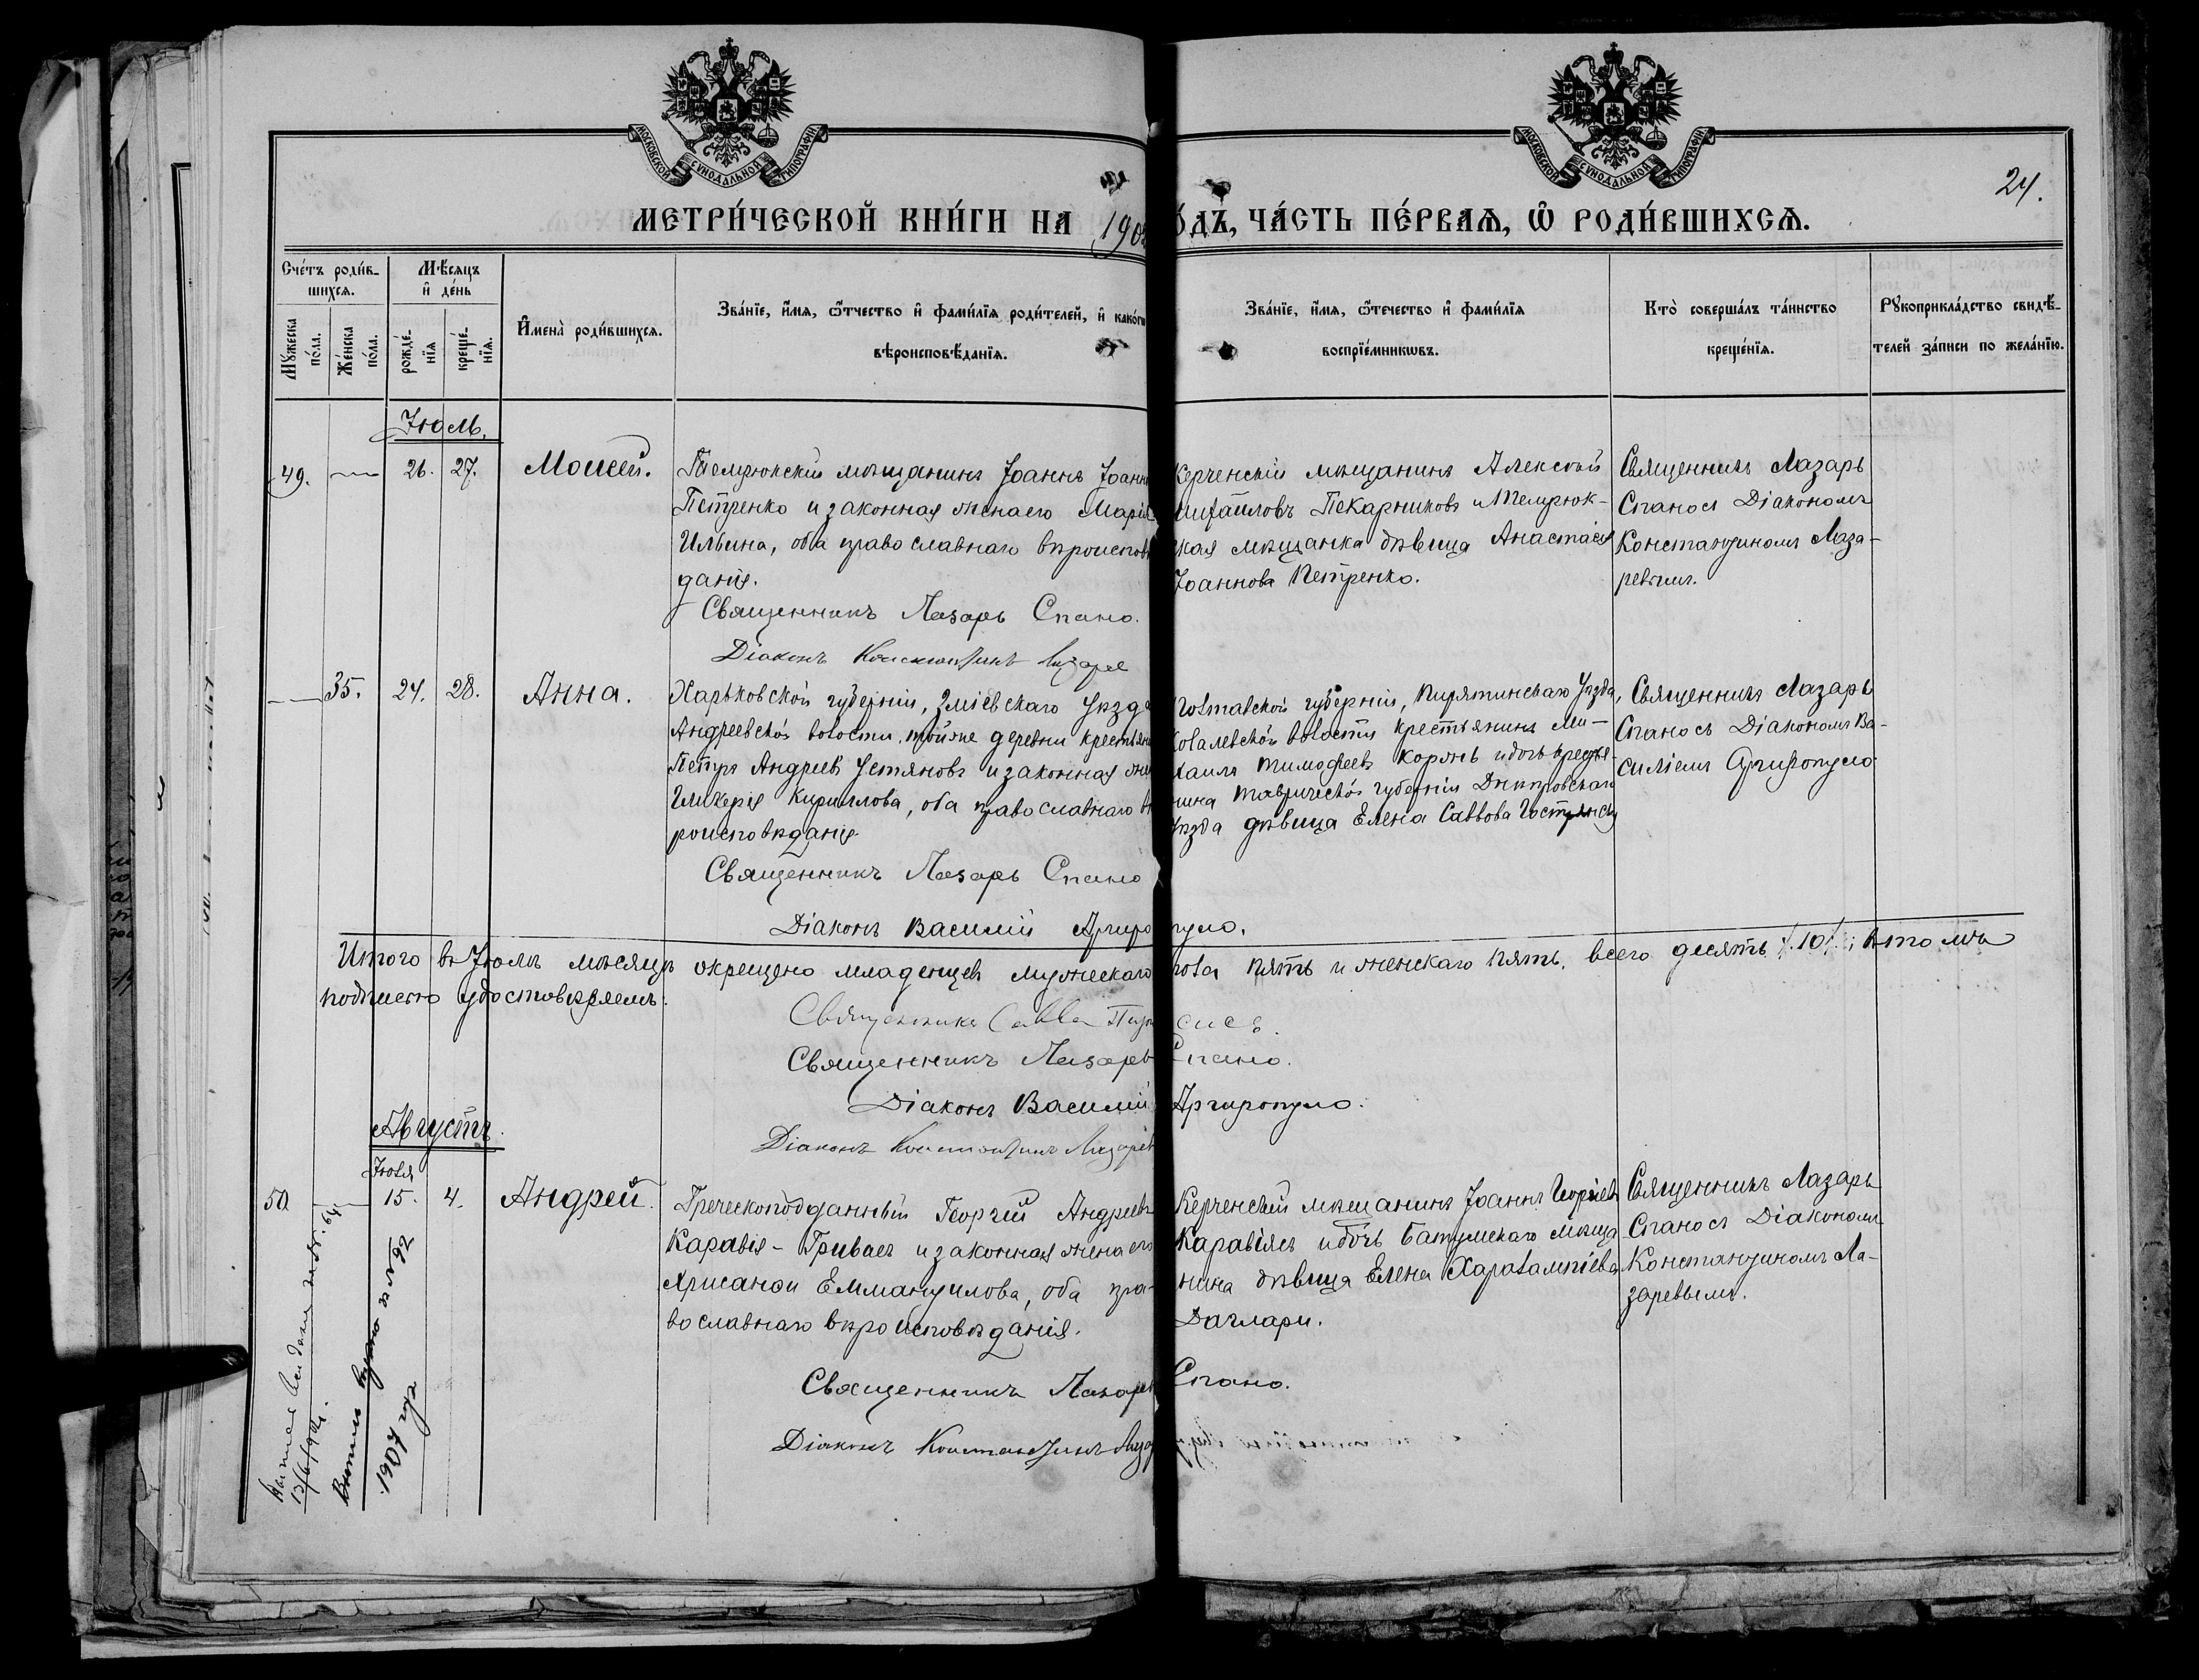 МОСКОВСКОЙ СУНОДАЛЬНОЙ ТИПОГРАФІИ
МОСКОВСКОЙ СУНОДАЛЬНОЙ ТИПОГРАФІИ
24.
МЕТРИ́ЧЕСКОЙ КНИ́ГИ НА 190
О́ДЪ, ЧА́СТЬ ПЕ́РВАѦ, Ѿ РОДИ́ВШИХСѦ.
Сче́тъ роди́в-
шихсѧ.
Мꙋ́жеска по́ла.
Же́нска по́ла.
Мѣ́сѧцъ и҆ де́нь
рожде́-
нїѧ
креще́-
нїѧ.
И҆мена̀ роди́вшихсѧ.
Зва́нїе, и҆́мѧ, ѻ҆́тчество и҆ фами́лїѧ роди́телей, и҆ како́гѡ
вѣроисповѣ́данїѧ.
Зва́нїе, и҆́мѧ, ѻ҆те́чество и҆ фами́лїѧ
воспрїе́мникѡвъ.
Кто̀ соверша́лъ та́инство
креще́нїѧ.
Рꙋкоприкла́дство свидѣ́-
телей за́писи по жела́нїю.
Іюль.
49. 26. 27. Моисей.
Темрюкскій мѣщанинъ Іоаннъ Іоанн
Петренко и законная жена его Марія
Ильина, оба православнаго вѣроисповѣ
данія.
Священникъ Лазарь Спано.
Діаконъ Константинъ Лазаре
Керченскій мѣщанинъ Алексѣй
Михайловъ Пекарниковъ и Темрюк-
ская мѣщанка дѣвица Анастасія
Іоаннова Петренко.
Священникъ Лазарь
Спаносъ Діакономъ
Константиномъ Лаза-
ревымъ.
35. 24. 28. Анна.
Харьковской губерніи, Зміевскаго уѣзда
Андреевской волости, той же деревни крестьян
Петръ Андреевъ Устяновъ и законная же
Гликерія Кириллова, оба православнаго вѣ
роисповѣданія
Священникъ Лазарь Спано
Діаконъ Василій Аргиро
пуло.
Полтавской губерніи, Пирятинскаго уѣзда,
Ковалевской волости крестьянинъ Ми-
хаилъ Тимофеевъ Коронь и дочь крестья-
нина Таврической губерніи Днѣпровскаго
уѣзда дѣвица Елена Саввова
Священникъ Лазарь
Спаносъ Діакономъ Ва-
силіемъ Аргиропуло
Итого въ Іюлѣ мѣсяцѣ окрещено младенцевъ мужескаго
пола пять и женскаго пять, всего десять /10/, въ томъ
подписью удостовѣряемъ.
Священникъ Савва
Священникъ Лазарь Спано.
Діаконъ Василій Аргиропуло.
Діаконъ Константинъ Лазарев
Августъ.
Іюля
50. 15. 4. Андрей.
Греческоподданный Георгій Андреевъ
Каравія-Гривасъ и законная жена его
Хрисанѳи Еммануилова, оба пра-
вославнаго вѣроисповѣданія.
Священникъ Лазарь Спано.
Діаконъ Константинъ Лаза
Керченскій мѣщанинъ Іоаннъ Георгіевъ
Каравіясъ и дочь Батумскаго мѣща
нина дѣвица Елена Харалампіева
Даглари.
Священникъ Лазарь
Спаносъ Діакономъ
Константиномъ Ла-
заревымъ.
Выписка выдана за № 64
13/6/1924.
за № 92
1907 года